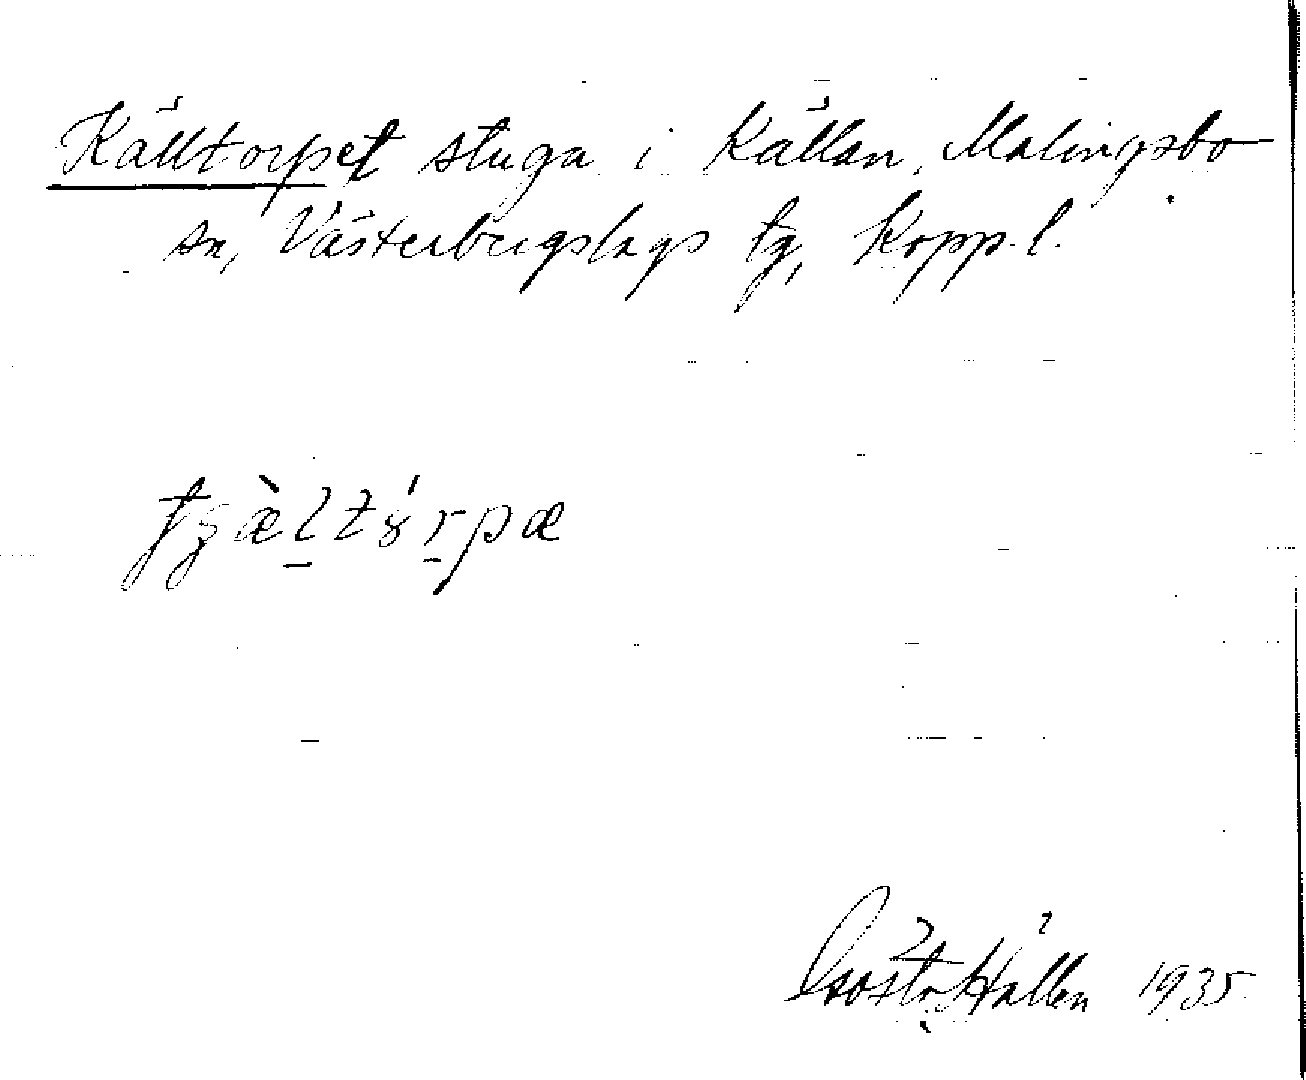 Källtorpet stuga i Källan, Malingsbo
sn, Västerbergslags tg, Kopp. l.
Gösta Hållén 1935